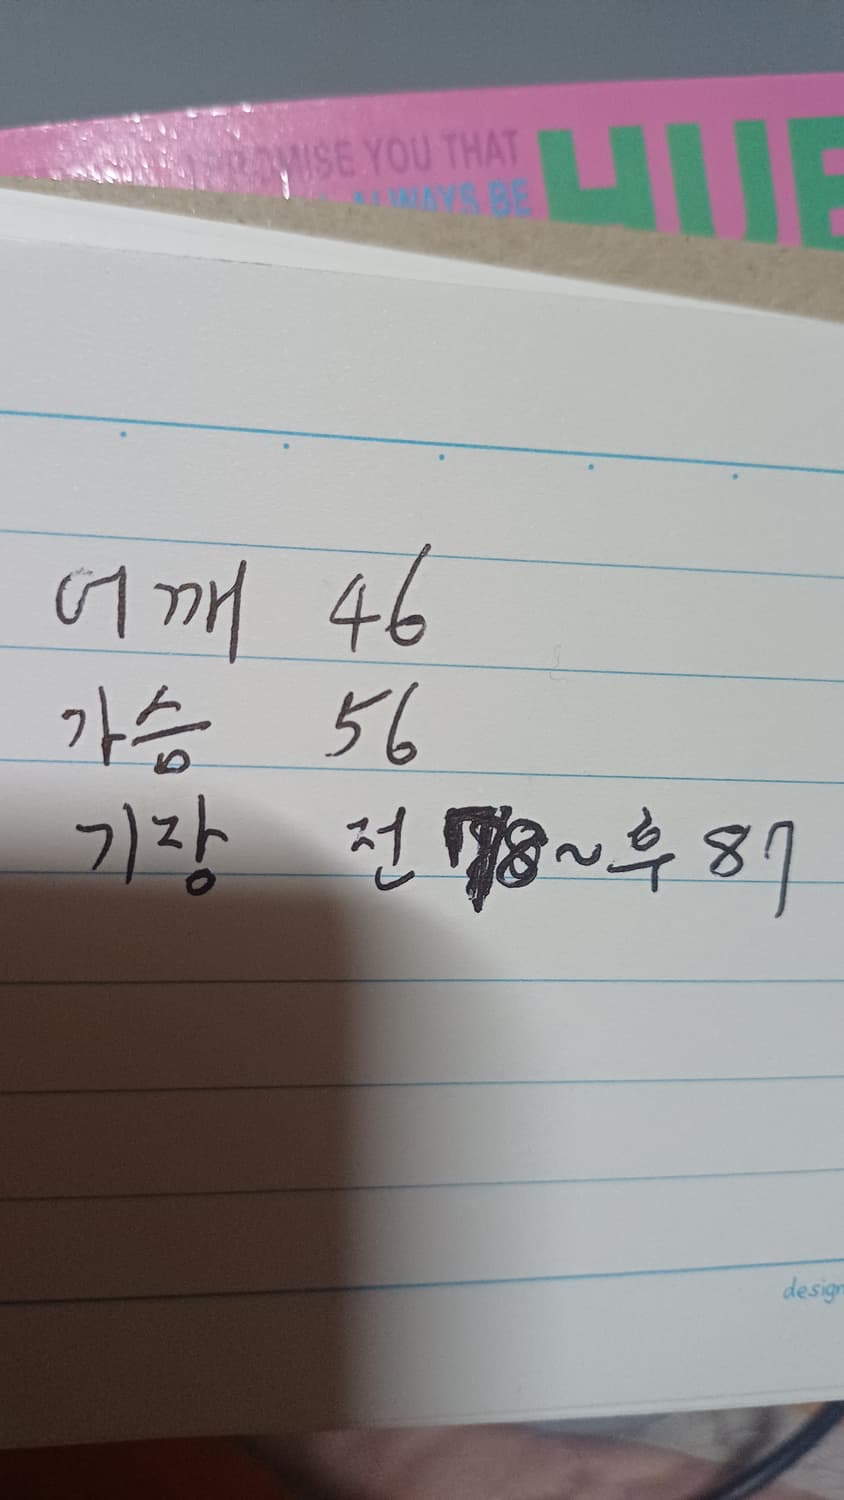 I PROMISE YOU THAT
ALWAYS BE
HUE
어깨 46
가슴 56
기장 전 78~후 87
design